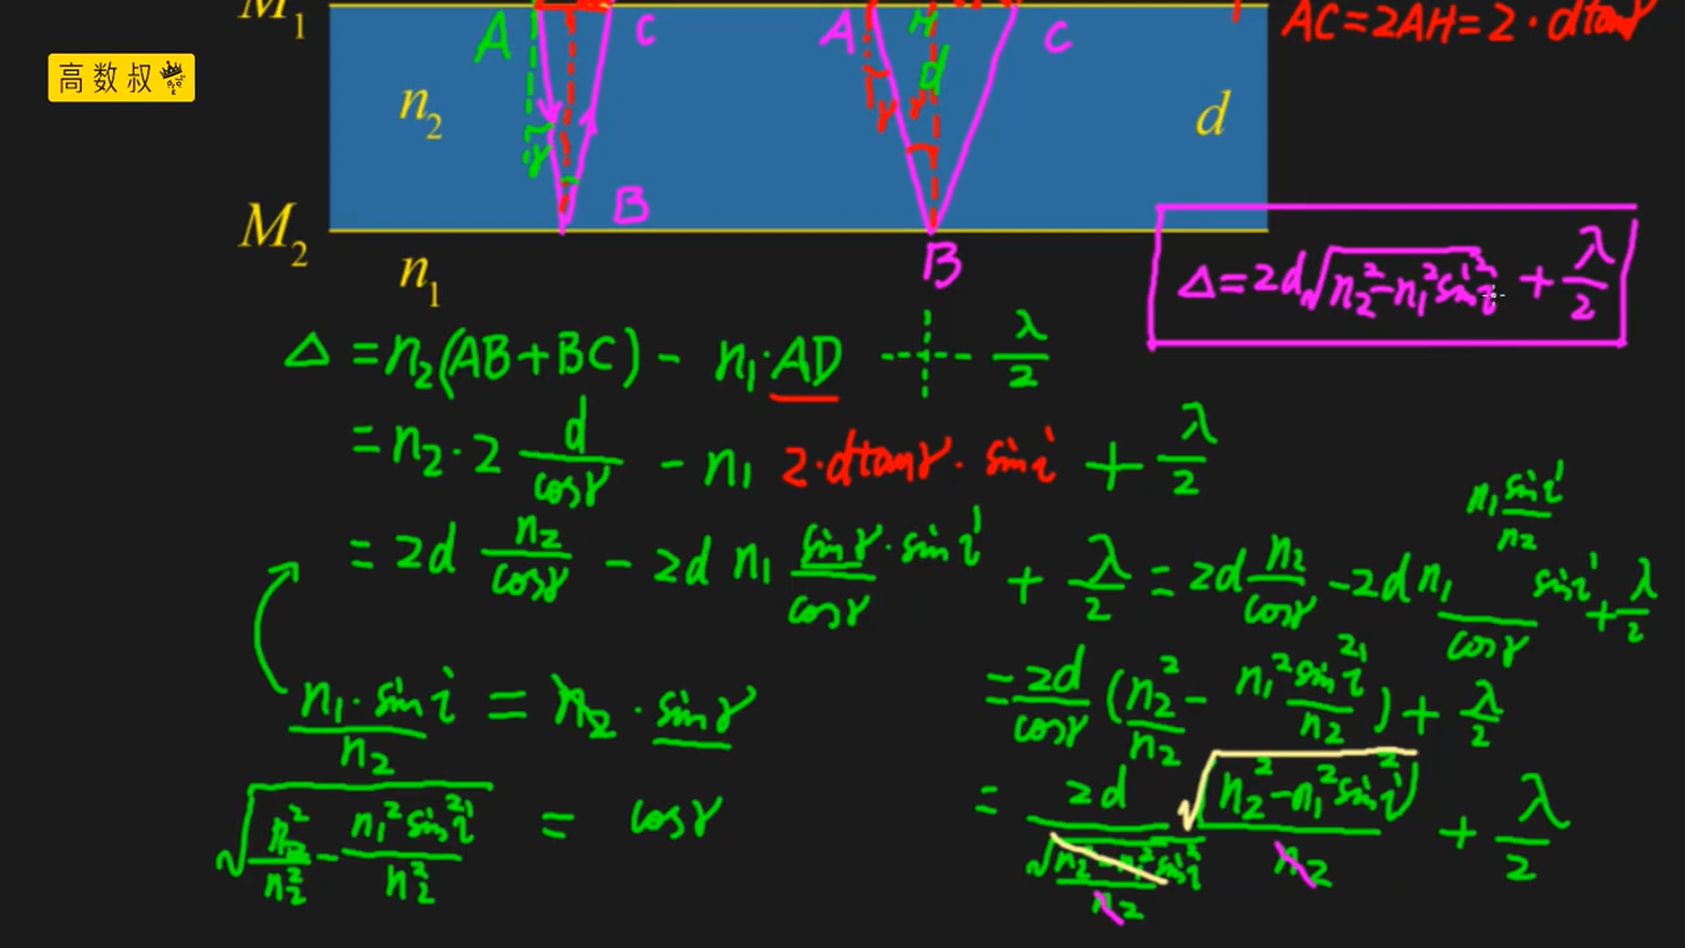 M₁
A
C
A
H
C
AC=2AH=2·dtanγ
高数叔
n₂
d
d
γ
γ
γ
B
M₂
n₁
B
Δ=2d√(n₂²-n₁²sin²i) + λ/2
Δ =n₂(AB+BC) - n₁·AD + λ/2
=n₂·2 d/cosγ - n₁ 2·dtanγ·sini + λ/2
=2d n₂/cosγ - 2d n₁ sinγ·sini/cosγ + λ/2 =2d n₂/cosγ -2d n₁ (n₁sini/n₂) sini/cosγ + λ/2
n₁·sini/n₂ = n₂·sinγ
=2d/cosγ (n₂²/n₂ - n₁²sin²i/n₂) + λ/2
√(n₂²/n₂² - n₁²sin²i/n₂²) = cosγ
= 2d/(√(n₂²-n₁²sin²i)/n₂) · (n₂²-n₁²sin²i)/n₂ + λ/2